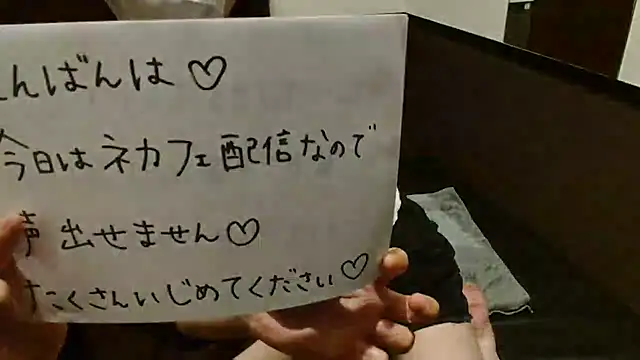 んばんは♡
今日はネカフェ配信なので
声出せません♡
たくさんいじめてください♡